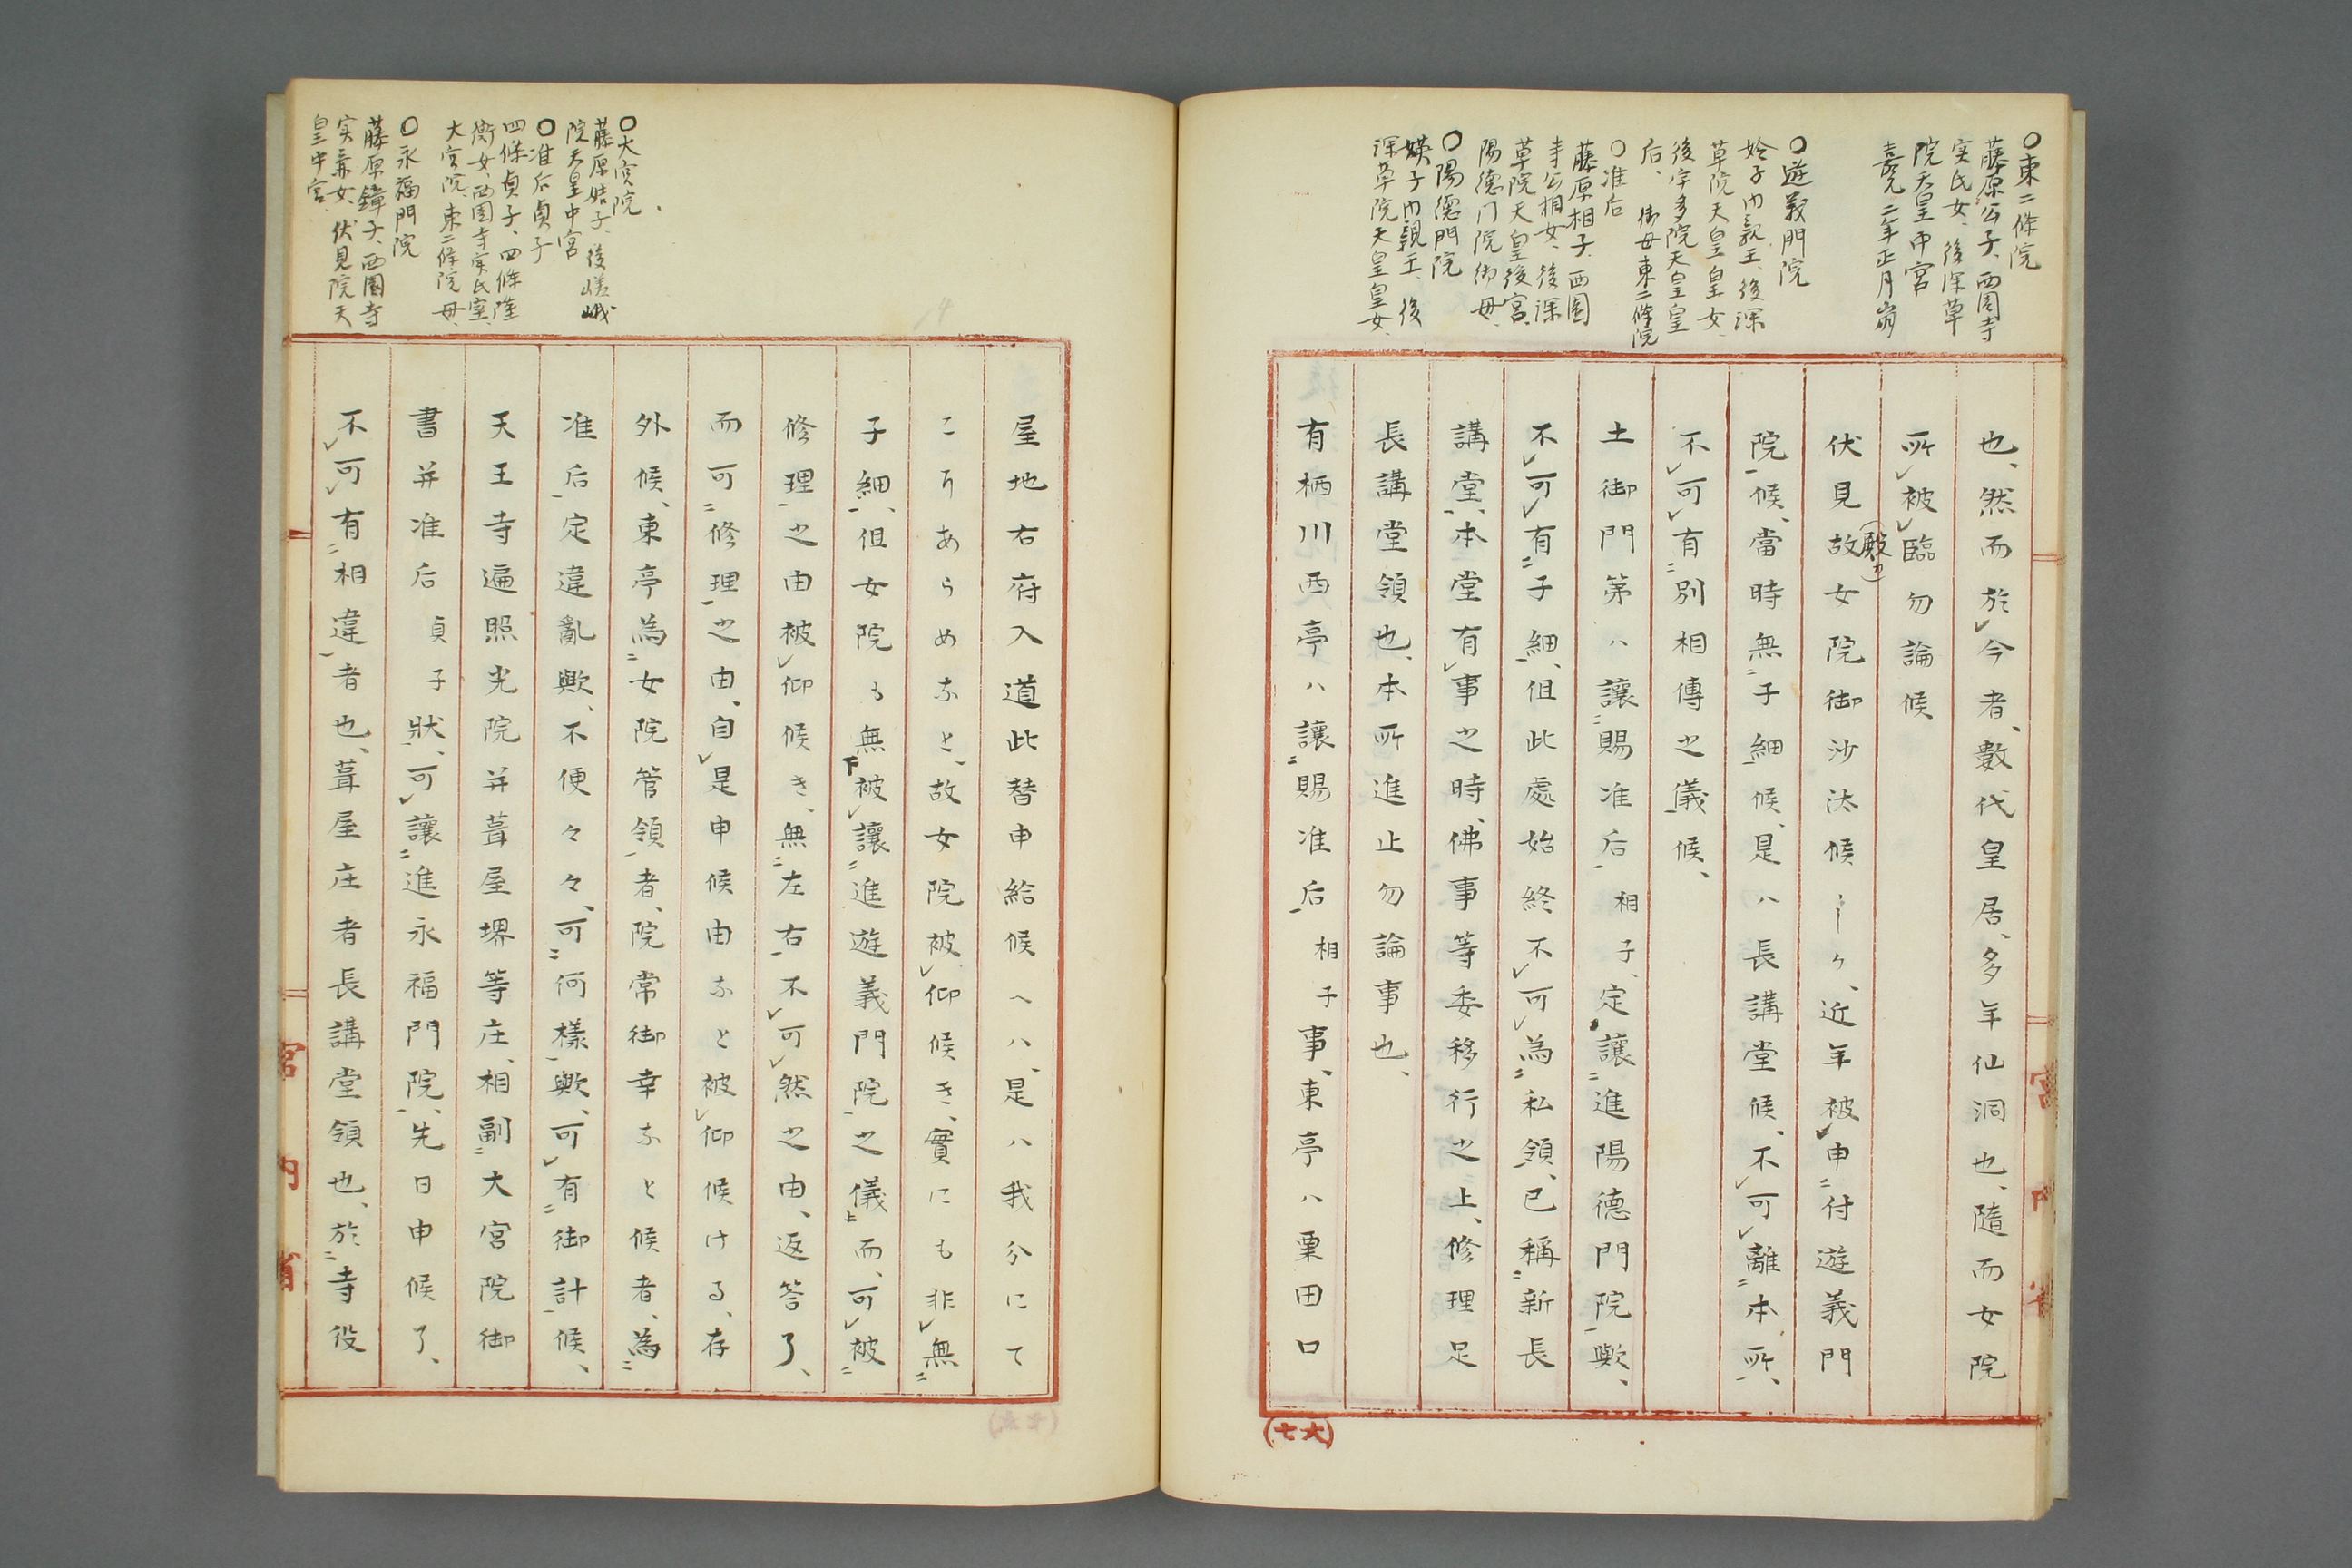 〇東二條院
藤原公子、西園寺
実氏女、後深草
院天皇中宮
嘉元二年正月崩
〇遊義門院
姈子内親王、後深
草院天皇皇女、
後宇多院天皇皇
后、御母東二條院
〇准后
藤原相子、西園
寺公相女、後深
草院天皇後宮、
陽徳门院御母、
〇陽德門院
媖子内親王、後
深草院天皇皇女、
也、然而於今者、數代皇居、多年仙洞也、隨而女院
所被臨勿論候
伏見故(殿カ)女院御沙汰候しヶ、近年被申付遊義門
院候、當時無子細候、是ハ長講堂候、不可離本所、
不可有別相傳之儀候、
土御門第ハ讓賜准后相子、定讓進陽德門院歟、
不可有子細、但此處始終不可為私領、已稱新長
講堂、本堂有事之時、佛事等委移行之上、修理足
長講堂領也、本所進止勿論事也、
有栖川西亭ハ讓賜准后相子事、東亭ハ粟田口
(七大)
宮内省
〇大宮院
藤原姞子、後嵯峨
院天皇中宮
〇准后貞子
四條貞子、四條隆
衡女、西園寺実氏室、
大宮院、東二條院母、
〇永福門院
藤原鏱子、西園寺
実兼女、伏見院天
皇中宮、
屋地右府入道此替申給候へハ、是ハ我分にて
こりあらめなと、故女院被仰候き、實にも非無
子細、但女院も無被讓進遊義門院之儀而、可被
修理之由被仰候き、無左右不可然之由、返答了、
而可修理之由、自是申候由なと被仰候ける、存
外候、東亭為女院管領者、院常御幸なと候者、為
准后定違亂歟、不便々々、可何樣歟、可有御計候、
天王寺遍照光院并葺屋堺等庄、相副大宮院御
書并准后貞子狀、可讓進永福門院、先日申候了、
不可有相違者也、葺屋庄者長講堂領也、於寺役
宮内省